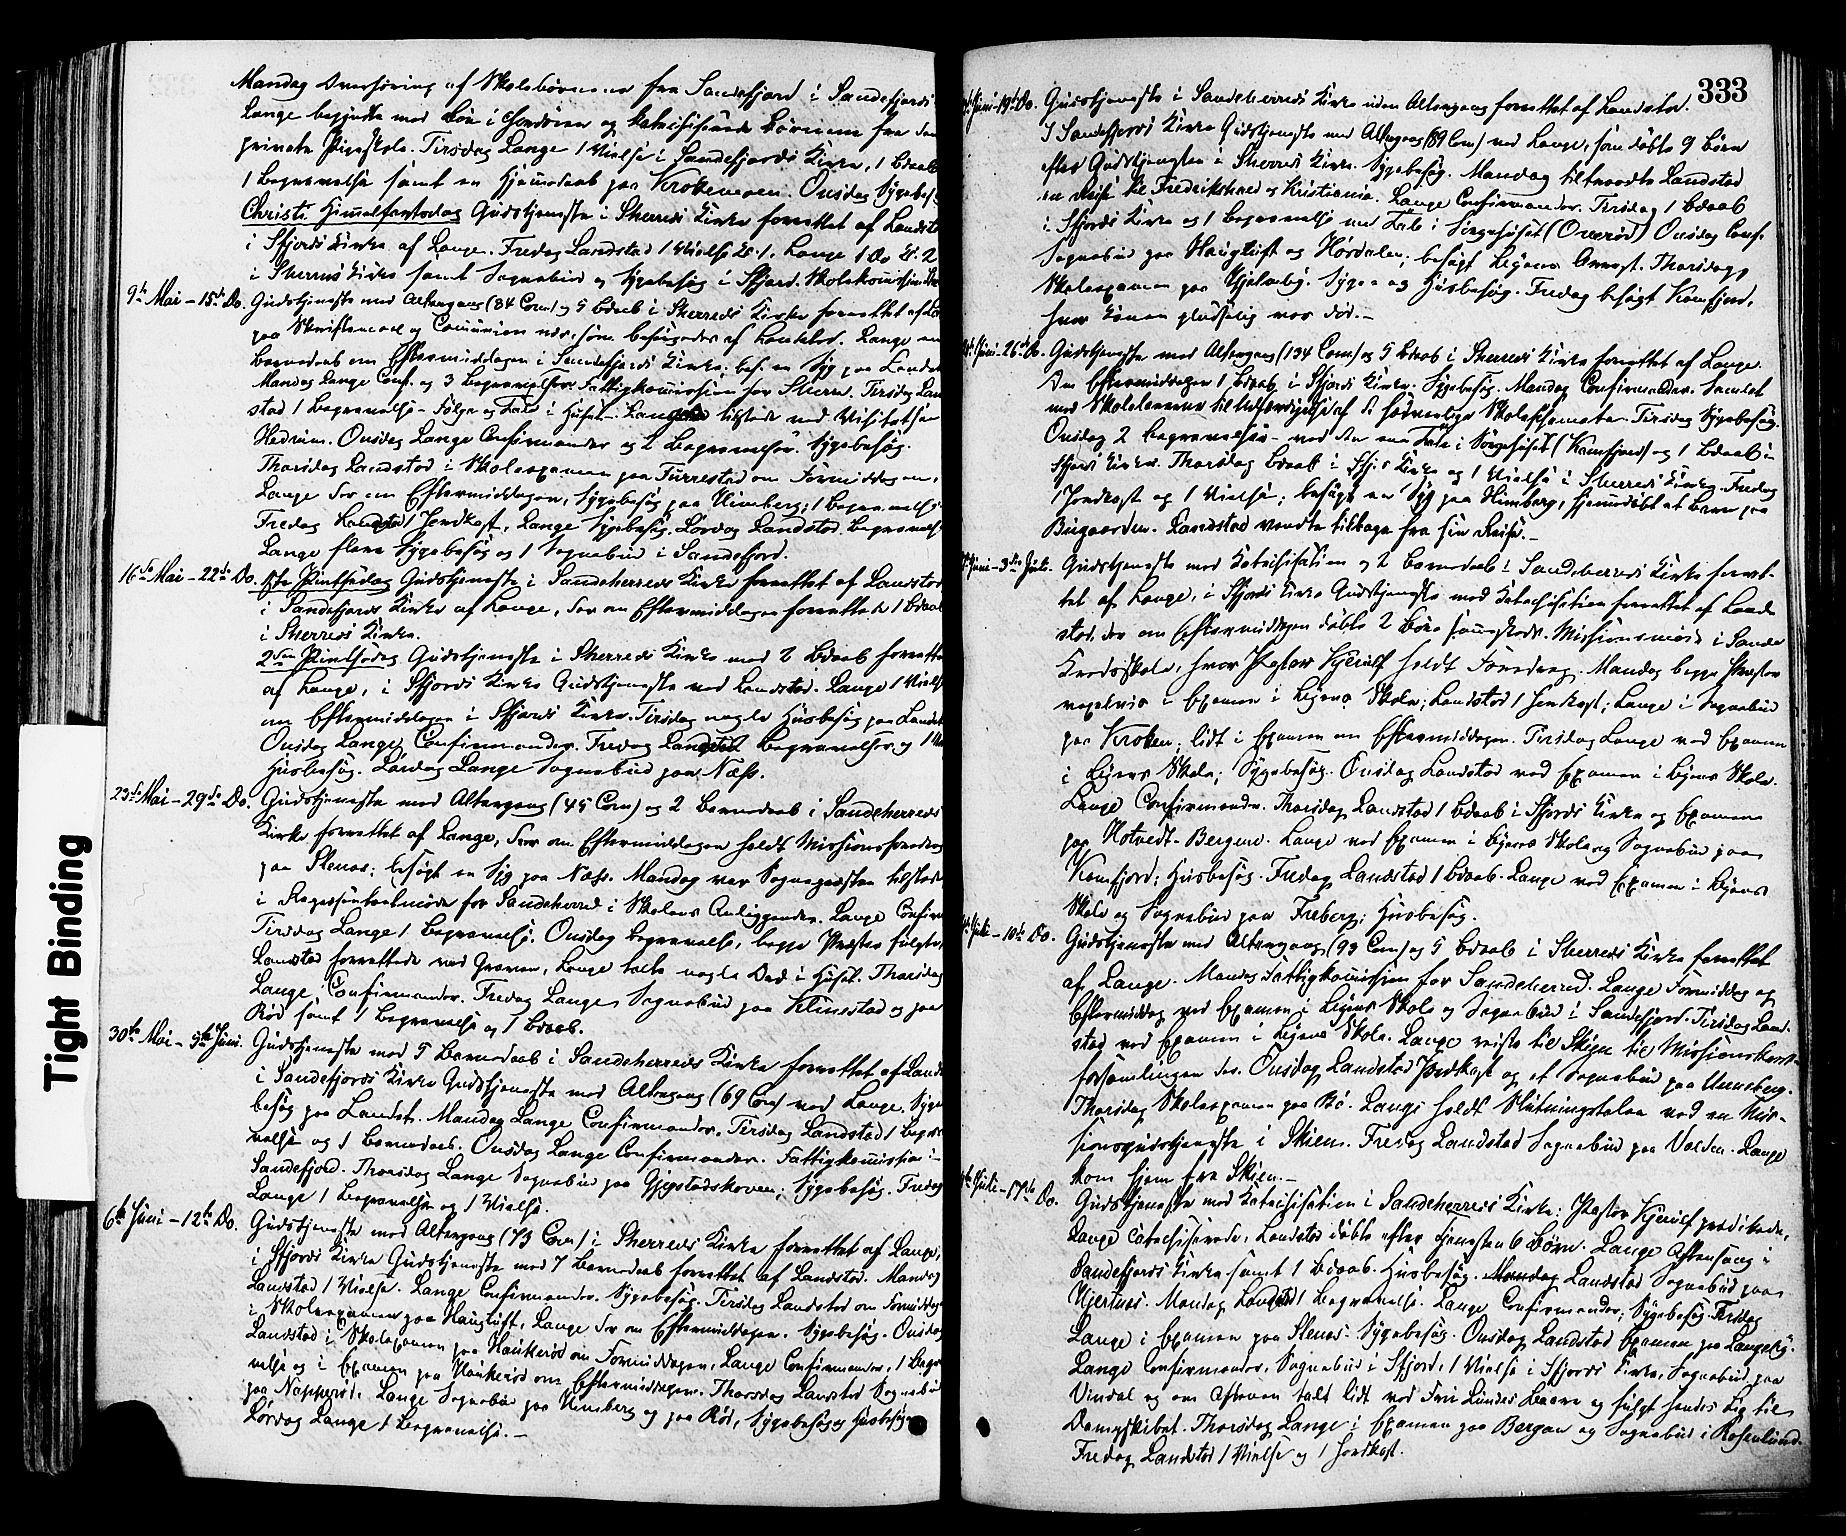 Mandag Overhøring af Skolebørnene fra Sandefjord i Sandefjords
Lange begyndte med Bøn i og katechiserede Børnene fra den
private Pigeskole. Tirsdag Lange 1 Vielse i Sandefjords Kirke, 1 Bdaab
1 Begravelse samt en Hjemmedaab paa Krokemoen. Onsdag Sygebesøg
Christi Himmelfartsdag Gudstjeneste i Sherreds Kirke forrettet af Landstad
i Sfjords Kirke af Lange. Fredag Landstad 1 Vielse Kl. 1. Lange 1 Do Kl. 2
i Sherreds Kirke samt Sognebud og Sygebesøg i Sfjord. Skolekommission
9de Mai – 15de Do. Gudstjeneste med Altergang (84 Com) og 5 Bdaab i Sherreds Kirke forrettet af
paa Skriftemaal og Communion nær, som besørgedes af Landstad. Lange en
Barnedaab om Eftermiddagen i Sandefjords Kirke; bes. en Syg paa
Mandag Lange Conf. og 3 Begravelser. Fattigkommission for Sherred. Tirsdag Land
stad 1 Begravelse – Følge og Tale i Huset. Lange tilstede ved Visitatsen
Hedrum. Onsdag Lange Confirmander og 2 Begravelser. Sygebesøg.
Thorsdag Landstad i Skoleexamen paa Furrestad om Formiddagen,
Lange der om Eftermiddagen, Sygebesøg paa Unneberg; 1 Begravelse
Fredag Landstad 1 Jordkast, Lange Sygebesøg. Lørdag Landstad Begravelse
Lange flere Sygebesøg og 1 Sognebud i Sandefjord.
16de Mai – 22de Do. 1ste Pintsedag Gudstjeneste i Sandeherreds Kirke forrettet af Landstad
i Sandefjords Kirke af Lange, der om Eftermiddagen forrettede 1 Bdaab
i Sherreds Kirke.
2den Pintsedag Gudstjeneste i Sherreds Kirke med 2 Bdaab forrettet
af Lange, i Sfjords Kirke Gudstjeneste ved Landstad. Lange 1 Vielse
om Eftermiddagen i Sfjords Kirke. Tirsdag nogle Husbesøg paa Landet
Onsdag Lange Confirmander. Fredag Landstad Begravelser og 1
Husbesøg. Lørdag Lange Sognebud paa Næss.
23de Mai – 29de Do. Gudstjeneste med Altergang (45 Com) og 2 Barnedaab i Sandeherreds
Kirke forrettet af Lange, der om Eftermiddagen holdt Missionsforedrag
paa Stenes; besøgt en Syg paa Næss. Mandag var Sognepresten tilstede
i Repræsentantmøde for Sandeherred i Skolens Anliggender. Lange Confirm
Tirsdag Lange 1 Begravelse. Onsdag Begravelse, begge Præster fulgte
Landstad forrettede ved Graven, Lange talte nogle Ord i Huset. Thorsdag
Lange Confirmander. Fredag Lange Sognebud paa Klinestad og paa
Rød samt 1 Begravelse og 1 Bdaab.
30te Mai – 5te Juni. Gudstjeneste med 5 Barnedaab i Sandeherreds Kirke forrettet af Landstad
i Sandefjords Kirke Gudstjeneste med Altergang (69 Com) ved Lange. Syge
besøg paa Landet. Mandag Lange Confirmander. Tirsdag Landstad 1 Begra
velse og 1 Barnedaab. Onsdag Lange Confirmander. Fattigkommission i
Sandefjord. Thorsdag Lange Sognebud paa Gjegstadskoven; Sygebesøg. Fredag
Lange 1 Begravelse og 1 Vielse.
6te Juni – 12te Do. Gudstjeneste med Altergang (73 Com) i Sherreds Kirke forrettet af Lange,
i Sfjords Kirke Gudstjeneste med 7 Barnedaab forrettet af Landstad. Mandag
Landstad 1 Vielse. Lange Confirmander. Sygebesøg. Tirsdag Landstad om Formiddag
i Skoleexamen paa Haugtuft, Lange der om Eftermiddagen. Sygebesøg. Onsdag
Landstad i Skoleexamen paa Haukerød om Formiddagen, Lange Confirmander, 1 Begra
velse og i Examen paa Haukerød om Eftermiddagen. Thorsdag Landstad Sognebud
paa Napperød. Lange Sognebud paa Unneberg og paa Rød, Sygebesøg og Husbesøg
Lørdag Lange 1 Begravelse. –
333
Juni – 19de Do. Gudstjeneste i Sandeherreds Kirke uden Altergang forrettet af Landstad.
I Sandefjords Kirke Gudstjeneste med Altergang (89 Com) ved Lange, som døbte 9 Børn
efter Gudstjenesten i Sherreds Kirke. Sygebesøg. Mandag tiltraadte Landstad
en Reise til Fredrikshald og Kristiania. Lange Confirmander. Tirsdag 1 Bdaab
i Sfjords Kirke og 1 Begravelse med Tale i Sørgehuset (Overød) Onsdag Conf.
Sognebud paa Haugtuft og Hørdalen; besøgt Byens Arrest. Thorsdag
Skoleexamen paa Hjelmby. Syge- og Husbesøg. Fredag besøgt Kamfjord,
hvor Konen pludselig var død. –
Juni – 26de Do. Gudstjeneste med Altergang (134 Com) og 5 Bdaab i Sherreds Kirke forrettet af Lange.
Om Eftermiddagen 1 Bdaab i Sfjords Kirke. Sygebesøg. Mandag Confirmander. Samlet
med Skolelærerne til Udfærdigelse af de sædvanlige Skoleschemata. Tirsdag Sygebesøg.
Onsdag 2 Begravelser – ved den ene Tale i Sørgehuset (Kamfjord) og 1 Bdaab i
Sfjords Kirke. Thorsdag Bdaab i Sfjs Kirke og 1 Vielse i Sherreds Kirke. Fredag
1 Jordkast og 1 Vielse; besøgt en Syg paa Himberg, hjemmedøbt et Barn paa
Bugaarden. Landstad vendte tilbage fra sin Reise. –
Juni – 3die Juli. Gudstjeneste med Katechisation og 2 Barnedaab i Sandeherreds Kirke forret-
tet af Lange, i Sfjords Kirke Gudstjeneste med Katechisation forrettet af Land
stad, der om Eftermiddagen døbte 2 Børn sammesteds. Missionsmøde i Sande
Kredsskole, hvor Pastor Kjerulf holdt Foredrag. Mandag begge Præster
vexelvis i Examen i Byens Skole; Landstad 1 Jordkast; Lange i Sognebud
paa Kroken, lidt i Examen om Eftermiddagen. Tirsdag Lange ved Examen
i Byens Skole; Sygebesøg. Onsdag Landstad ved Examen i Byens Skole.
Lange Confirmander. Thorsdag Landstad 1 Bdaab i Sfjords Kirke og Examen
paa Hotvedt-Bergene. Lange ved Examen i Byens Skole og Sognebud paa
Kamfjord; Husbesøg. Fredag Landstad 1 Bdaab. Lange ved Examen i Byens
Skole og Sognebud paa Freberg; Husbesøg.
Juli – 10de Do. Gudstjeneste med Altergang (93 Com) og 5 Bdaab i Sherreds Kirke forrettet
af Lange. Mandag Fattigkommission for Sandeherred. Lange Formiddag og
Eftermiddag ved Examen i Byens Skole og Sognebud i Sandefjord. Tirsdag Land-
stad ved Examen i Byens Skole. Lange reiste til Skien til Missionskreds-
forsamlingen der. Onsdag Landstad Jordkast og et Sognebud paa Unneberg.
Thorsdag Skoleexamen paa Bø. Lange holdt Slutningstalen ved en Mis-
sionsgudstjeneste i Skien. Fredag Landstad Sognebud paa Valden. Lange
kom hjem fra Skien. –
Juli – 17de Do. Gudstjeneste med Katechisation i Sandeherreds Kirke; Pastor Kjerulf prædikede,
Lange catechiserede, Landstad døbte efter Tjenesten 6 Børn. Lange Aftensang i
Sandefjords Kirke samt 1 Bdaab. Husbesøg. Mandag Landstad Sognebud paa
Hjertnes. Mandag Landstad 1 Begravelse. Lange Confirmander; Sygebesøg. Tirsdag
Lange i Examen paa Stenes. Sygebesøg. Onsdag Landstad Examen paa Langeby.
Lange Confirmander, Sognebud i Sfjord, 1 Vielse i Sfjords Kirke, Sognebud paa
Vindal og om Aftenen talt lidt ved Fru Lunds Baare og fulgt hendes Lig til
Dampskibet. Thorsdag Lange i Examen paa Bergan og Sognebud i Rosenlund.
Fredag Landstad 1 Vielse og 1 Jordkast.
Tight Binding